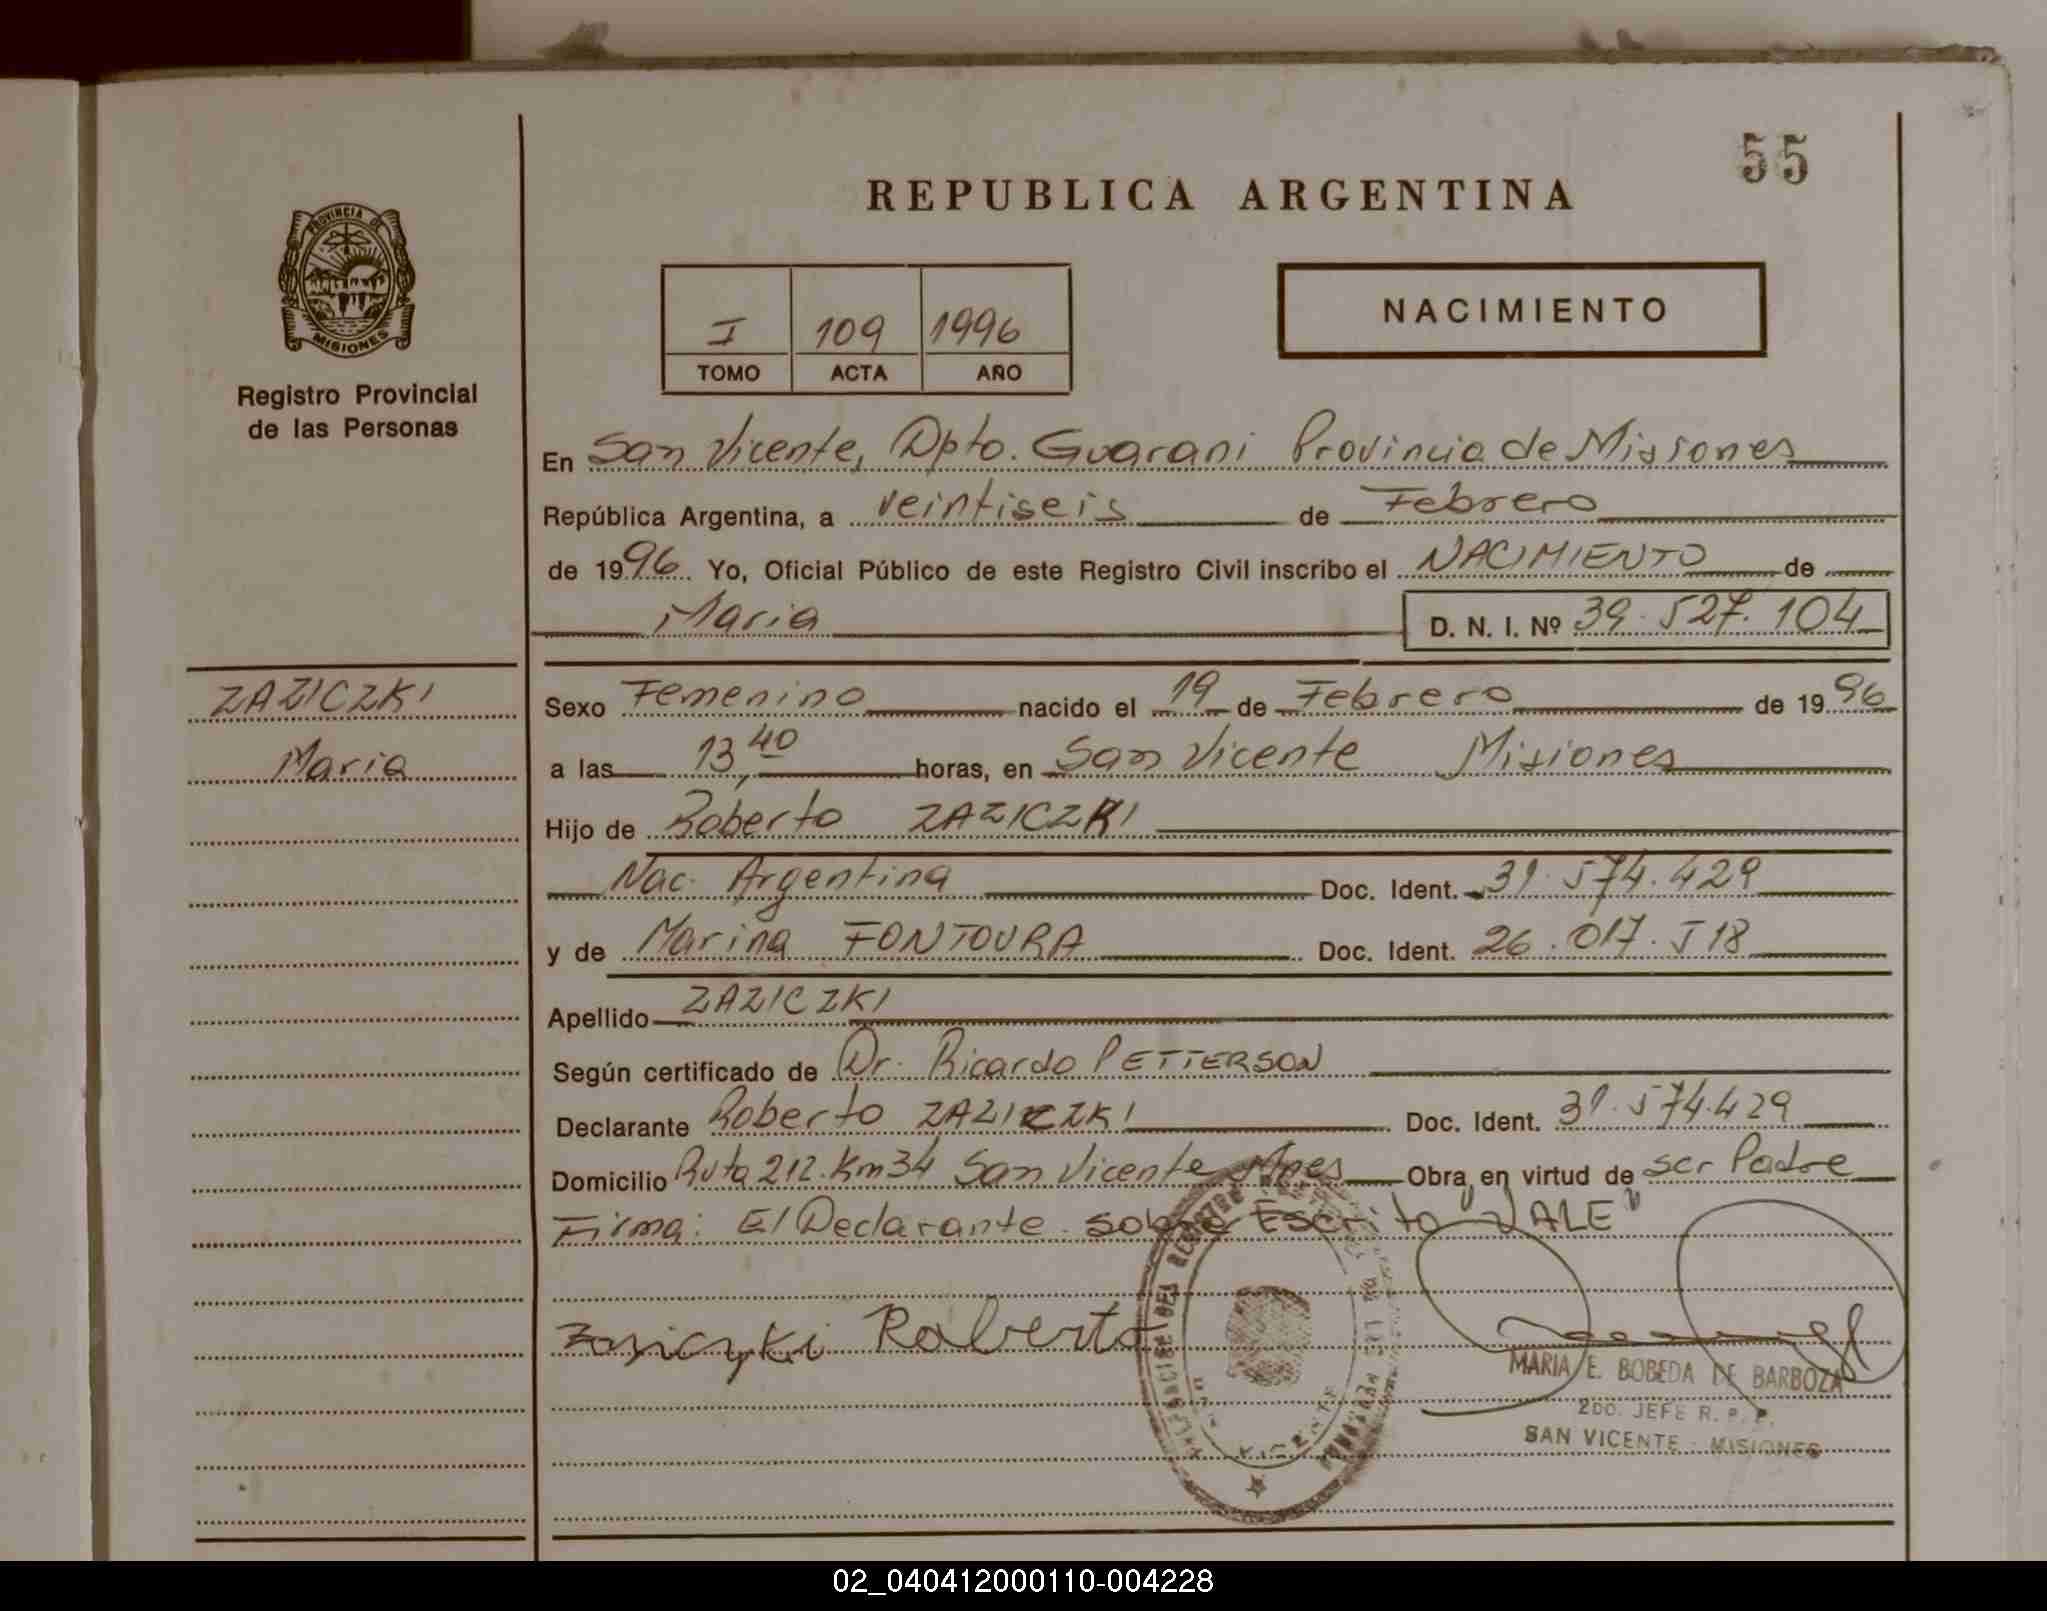 55
REPUBLICA ARGENTINA
PROVINCIA DE
MISIONES
Registro Provincial
de las Personas
I 109 1996
TOMO ACTA AÑO
NACIMIENTO
En San Vicente, Dpto. Guarani Provincia de Misiones
República Argentina, a veintiseis de Febrero
de 1996. Yo, Oficial Público de este Registro Civil inscribo el NACIMIENTO de
Maria D. N. I. Nº 39.527.104
ZAZICZKI
Maria
Sexo Femenino nacido el 19 de Febrero de 1996
a las 13,40 horas, en San Vicente Misiones
Hijo de Roberto ZAZICZKI
Nac. Argentina Doc. Ident. 31.574.429
y de Marina FONTOURA Doc. Ident. 26.017.518
Apellido ZAZICZKI
Según certificado de Dr. Ricardo PETTERSON
Declarante Roberto ZAZICZKI Doc. Ident. 31.574.429
Domicilio Ruta 212. Km 34 San Vicente Mnes Obra en virtud de ser Padre
Firma: El Declarante. Sobre Escrito "VALE"
Zasiczki Roberto
MARIA E. BOBEDA DE BARBOZA
2DO. JEFE R. P. P.
SAN VICENTE - MISIONES
02_040412000110-004228